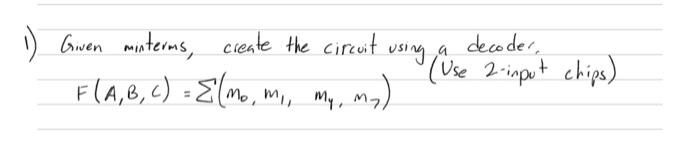 1) Given minterms, create the circuit using a decoder.
(Use 2-input chips)
F(A,B,C) = Σ(m₀, m₁, m₄, m₇)